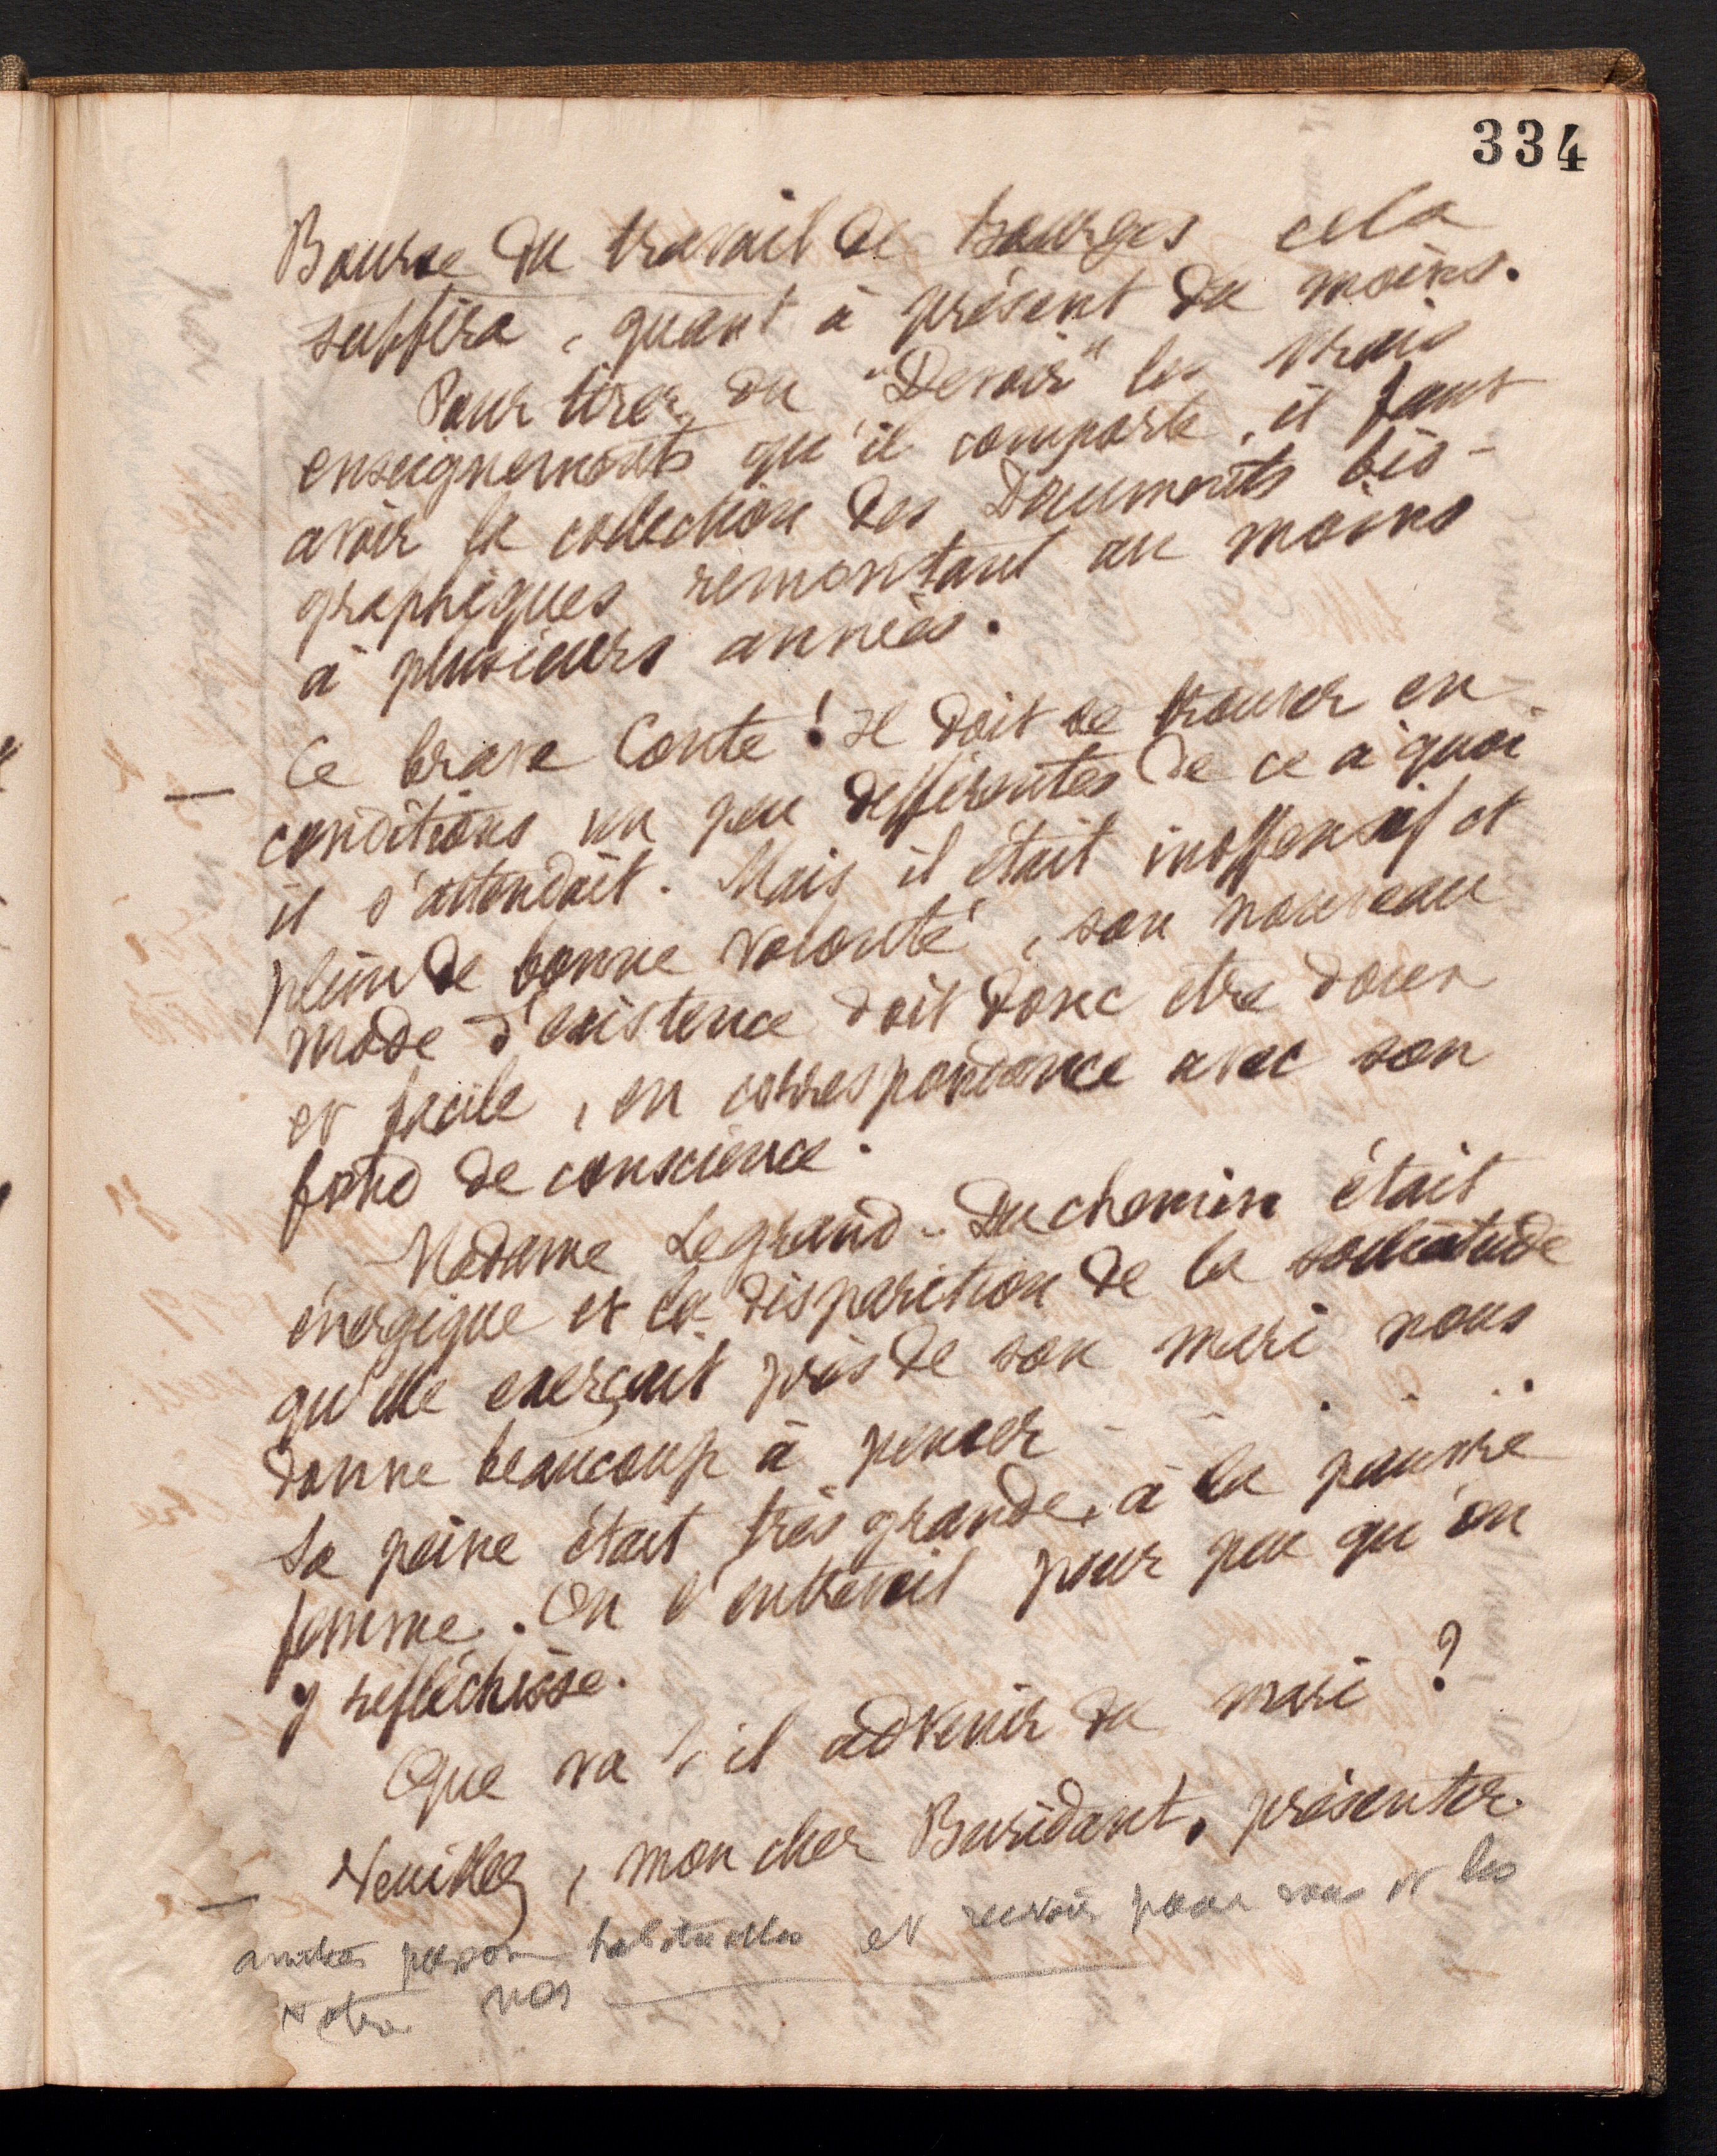 334
Bourse du travail de Bourges cela
suffira, quant à présent du moins.
Pour tirer du "Devoir" les vrais
enseignements qu'il comporte, il faut
avoir la collection des Documents bio-
graphiques remontant au moins
à plusieurs années.
— Ce brave Conte ! Il doit se trouver en
conditions un peu différentes de ce à quoi
il s'attendait. Mais il était inoffensif et
plein de bonne volonté, son nouveau
mode d'existence doit donc être doux
et facile, en correspondance avec son
fond de conscience.
Madame Legrand-Duchemin était
énergique et la disparition de la sollicitude
qu'elle exerçait près de son mari nous
donne beaucoup à penser
Sa peine était très grande, à la pauvre
femme. On l'entrevoit pour peu qu'on
y réfléchisse.
Que va t'il advenir du mari ?
— Veuillez, mon cher Buridant, présenter
amitiés habituelles et recevoir pour vous et les
vôtres nos